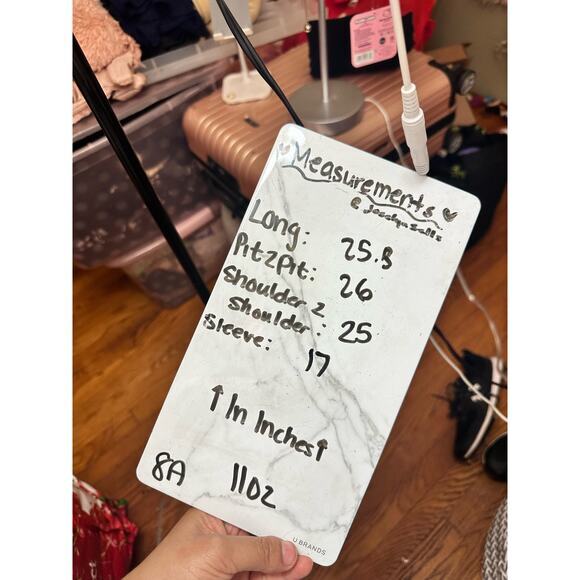 Measurements
@ Jocelynsellz
Long: 25.5
Pit2Pit: 26
Shoulder 2
Shoulder: 25
Sleeve: 17
↑ In Inches ↑
8A 11oz
U BRANDS